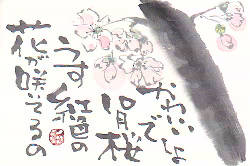 かわいいな
で
月桜
うす紅の
花が咲いてるの